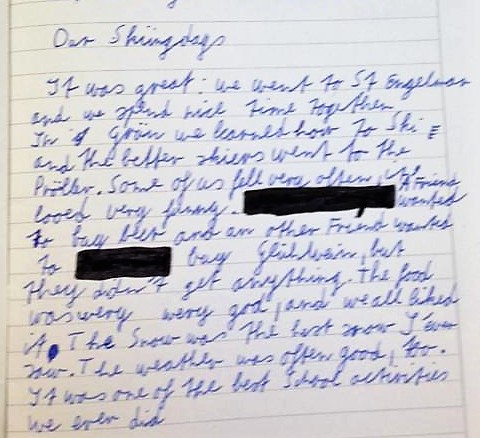 Our Skiingdays
It was great: we went to St Engelmar
and we spend nice time together
In Grün we learned how to Ski
and the better skiers went to the
Pröller. Some of us fell very often, it
looed very funny. A Friend wanted
to buy beer and an other Friend wanted
to buy Glühwein, but
they didn't get anything. The food
was very wery god, and we all liked
it. The Snow was the best snow I ever
saw. The weather was often good, too.
It was one of the best School activities
we ever did